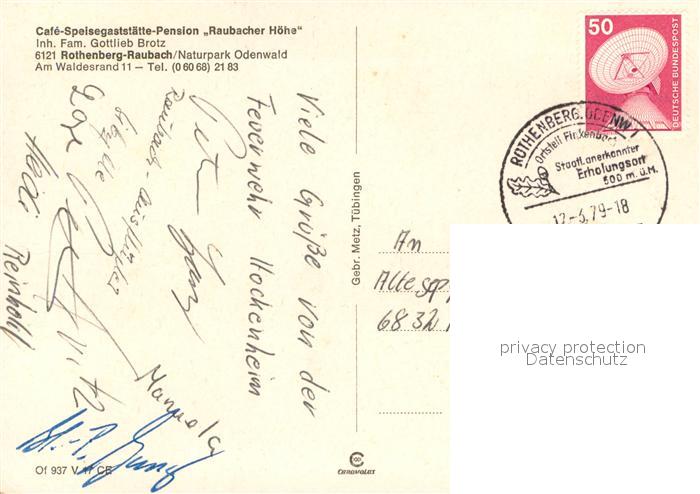 Café-Speisegaststätte-Pension „Raubacher Höhe"
Inh. Fam. Gottlieb Brotz
6121 Rothenberg-Raubach/Naturpark Odenwald
Am Waldesrand 11 – Tel. (0 60 68) 21 83
50
DEUTSCHE BUNDESPOST
ROTHENBERG, ODENW 1
Ortsteil Finkenberg
Staatl. anerkannter
Erholungsort
500 m. ü. M.
79-18
Viele Grüße von der
Feuerwehr Hockenheim
Raubach-Ausflügler
Heidi Reinhold
Manuela
Gebr. Metz, Tübingen
An
Alte
6832
privacy protection
Datenschutz
Of 937 V 17 CE
CHROMOLUX